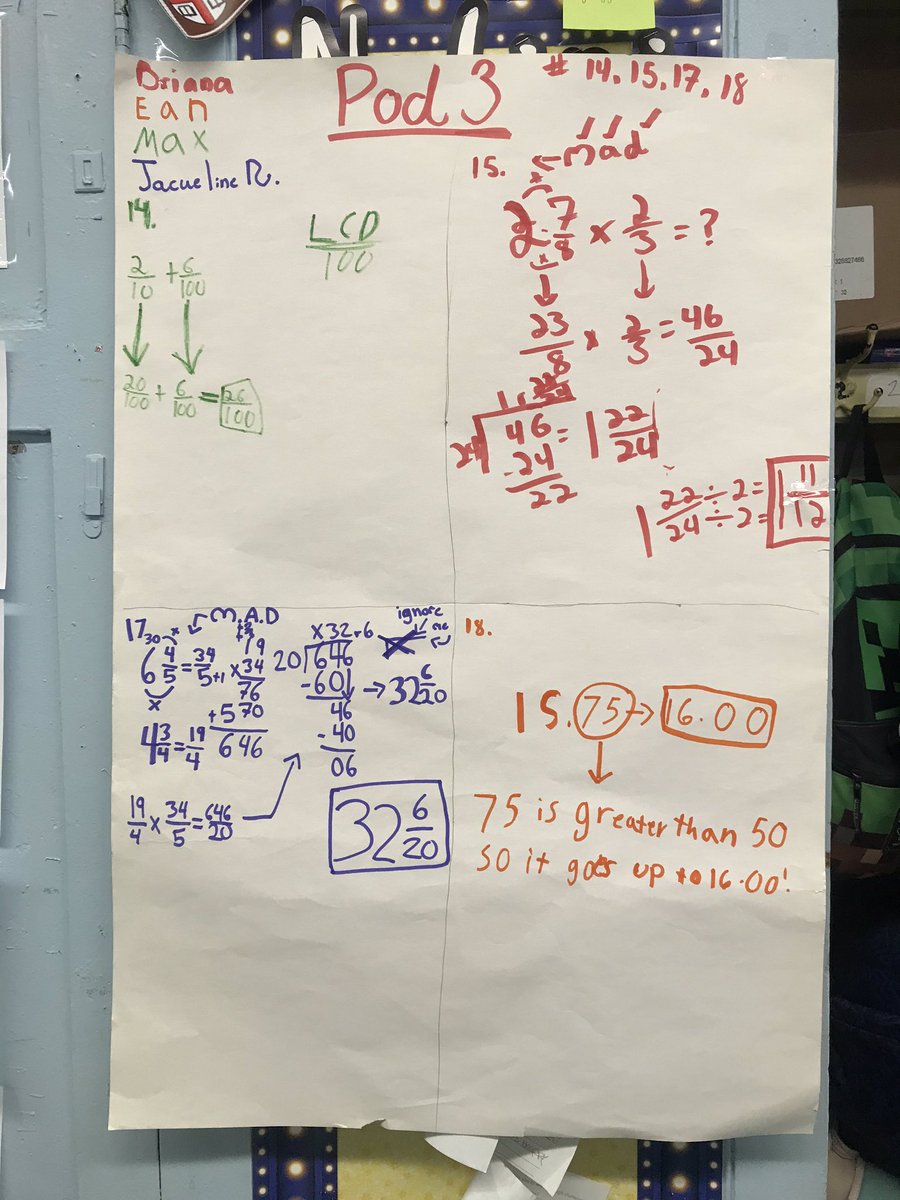 Briana
Ean
Max
Jacueline R.
Pod 3
# 14, 15, 17, 18
14.
LCD
100
2/10 + 6/100
20/100 + 6/100 = 26/100
15.
← mad
2 7/8 × 2/3 = ?
23/8 × 2/3 = 46/24
24 46 = 1 22/24
-24
22
1 22/24 ÷ 2 = ÷ 2 = 1 11/12
17
← M.A.D
6 4/5 = 34/5
4 3/4 = 19/4
19
× 34
76
+570
646
19/4 × 34/5 = 646/20
×32 r6
20 646
-60
46
-40
06
→ 32 6/20
ignore
me
32 6/20
18.
15.75 → 16.00
75 is greater than 50
so it goes up to 16.00!